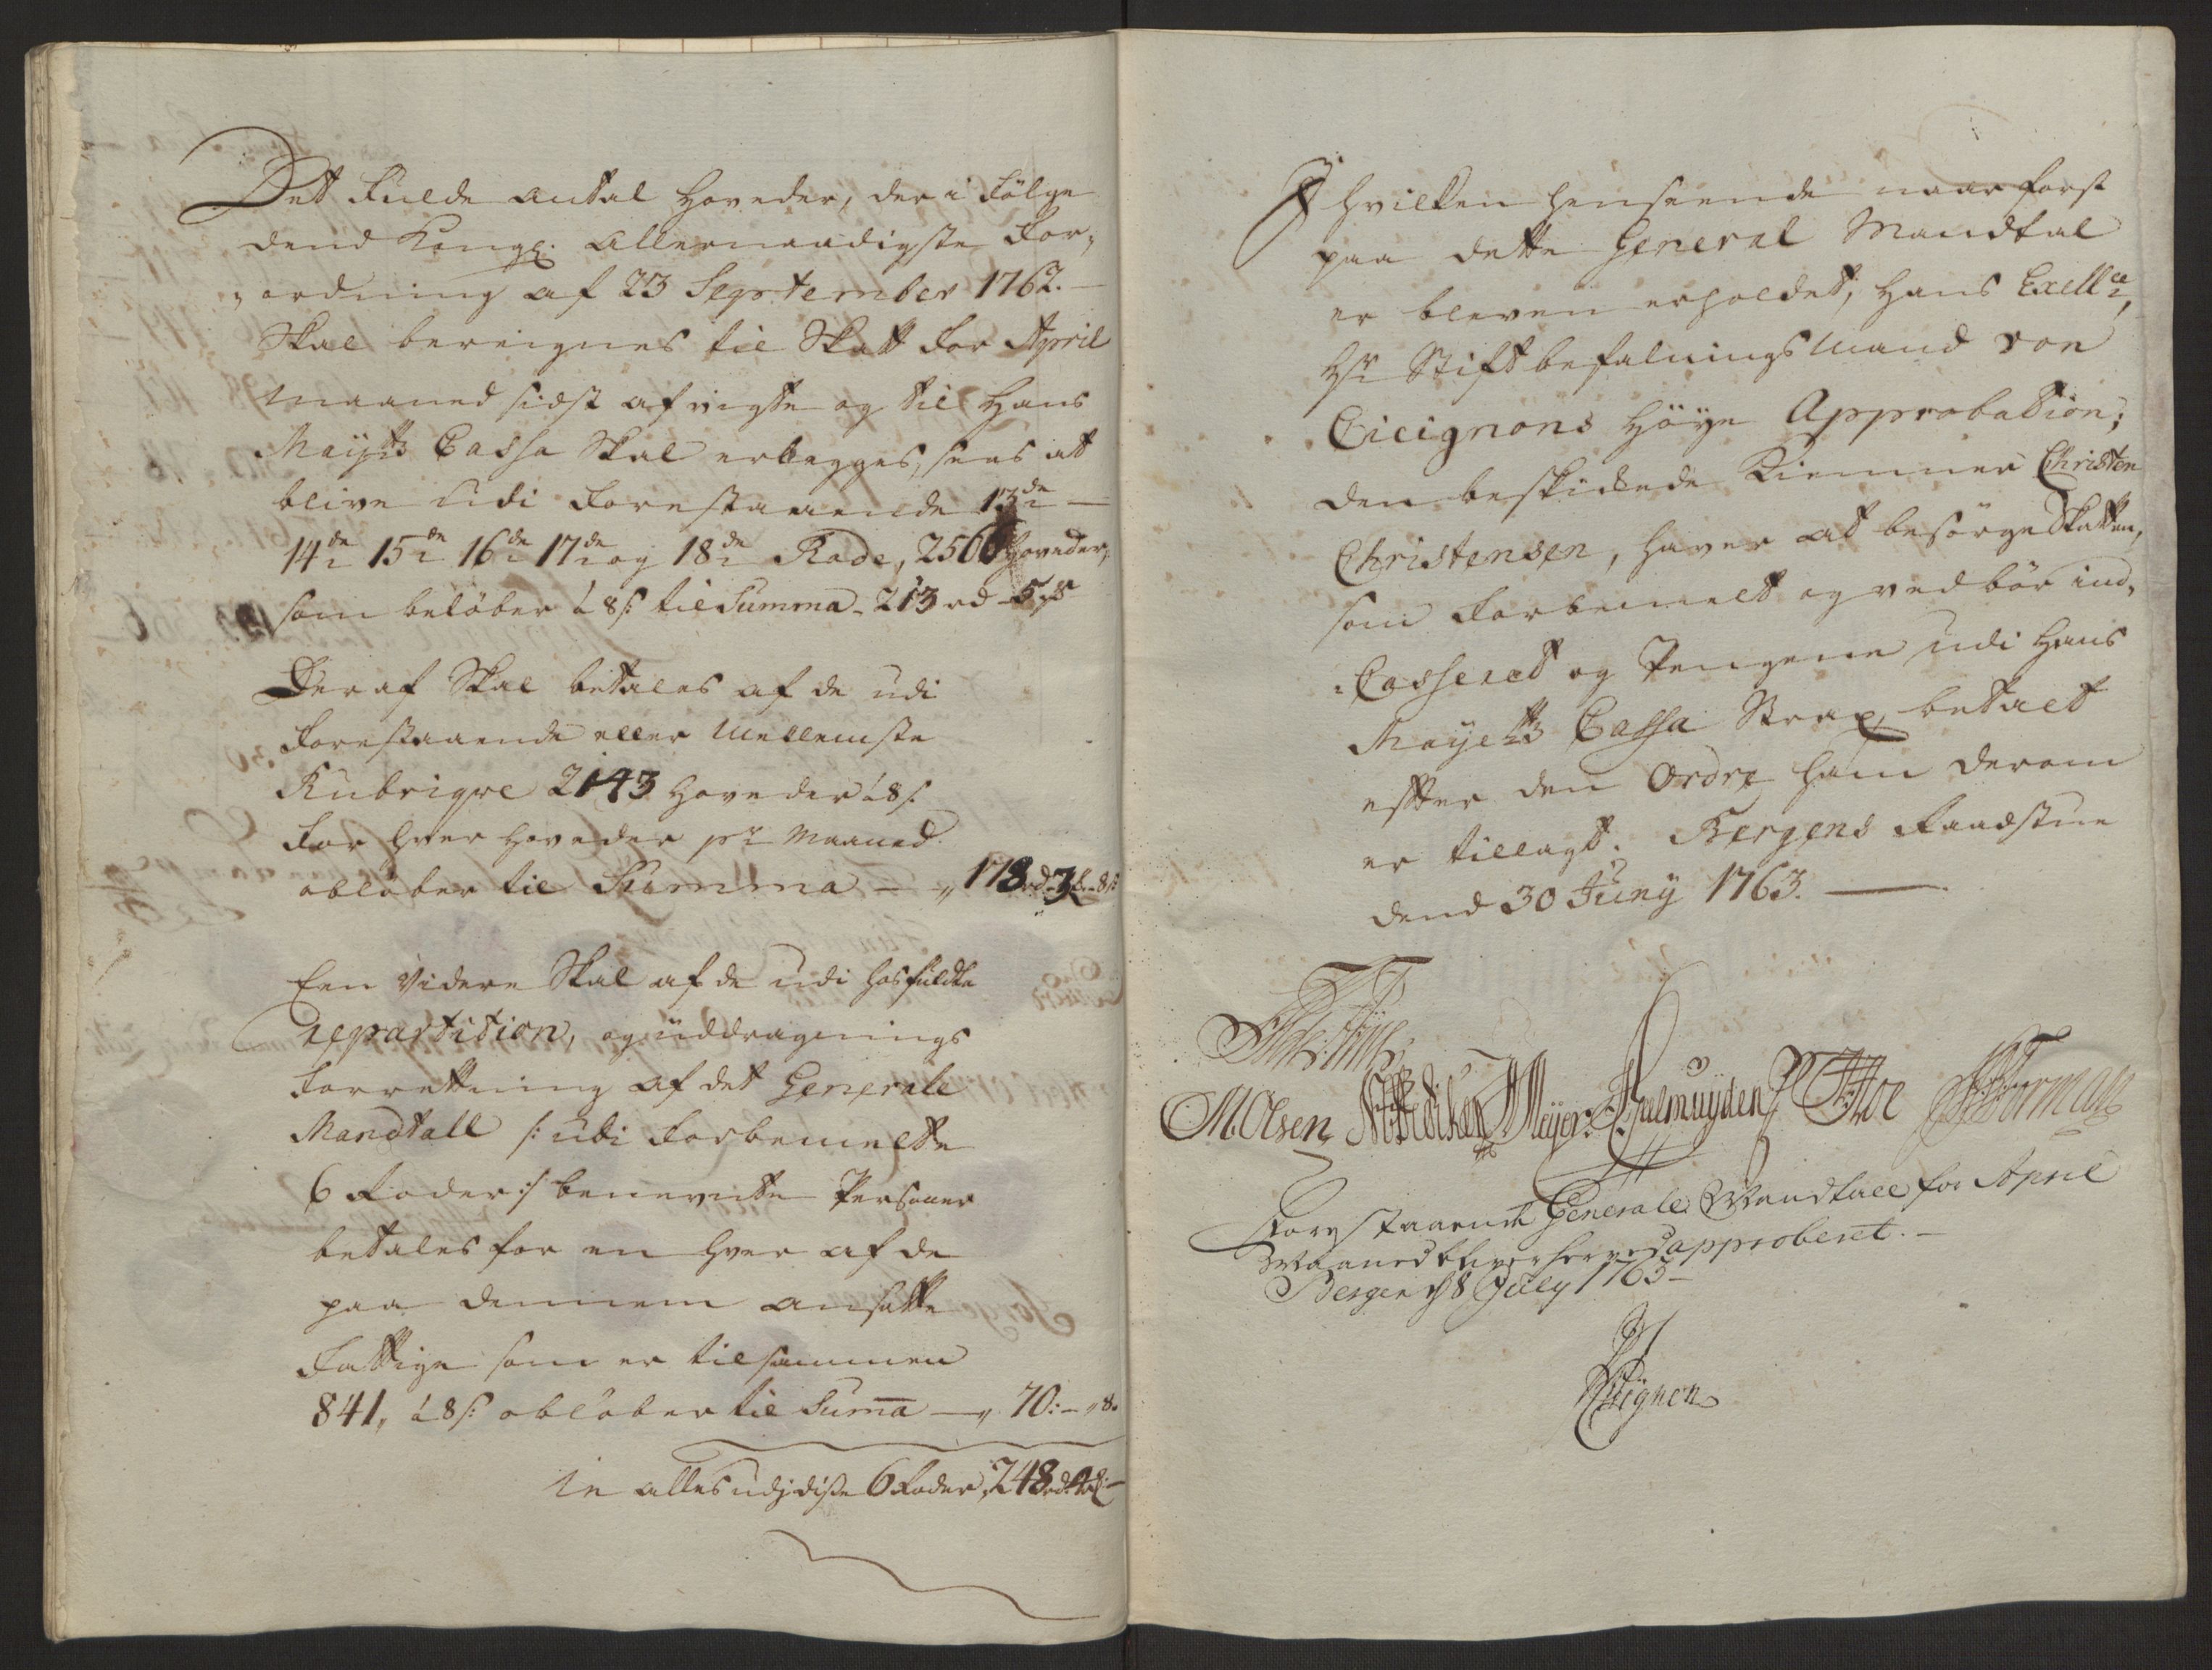 Det Fulde antal Hoveder, der i Fölge
dend Kongl: Allernaadigste For„
„ordning af 23 September 1762.
Skal bereignes til Skatt for April
Maaned sidst afvigte og til Hans
Mayts Cassa Skal erlegges, sees at
blive udi Forestaaende 13de —
14de 15de 16de 17de og 18de Rode, 2560 Hoveder,
som beløber á 8 s: til Summa - 213 rd -
Deraf Skal betales af de udi
Forestaaende eller Mellemste
Rubriqve 2143 Hoveder á 8 s:
for hver Hoveder pr Maaned.
obløber til Summa — „ 178 rd 3 - 8 s:
Een Videre Skal af de udi hosfuldte
repartition, og uddragnings
Forrettning af det Generale
Mandtall /: udi Forbemelte
6 Roder :/ benevnte Personer
betales for en hver af de
paa dennem ansatte
Fattige som er tilsammen
841, á 8 s: obløber til Suma — „ 70: - „ 8.
in alles udj diße 6 Roder, 248 rd
I hvilken henseende naar først
paa dette General Mandtal
er bleven erholdet, Hans Excellce,
Hr Stiftbefalningsmand von
Cicignons Höye Approbation;
den beskikkede Kiemner Christen
Christensen, haver at besörge Skatten,
som Forbemelt og ved bör ind„
„Casseret og Pengene udi Hans
Mayetts Cassa Strax betalt
effter den Ordre ham derom
er tillagt. Bergens Raadstue
dend 30 Juny 1763. —
M. Olsen Meyer
Forestaaende Generale Mandtall for April
Maaned bliver herved approberet. —
Bergen d 8 July 1763 —
Cicignon